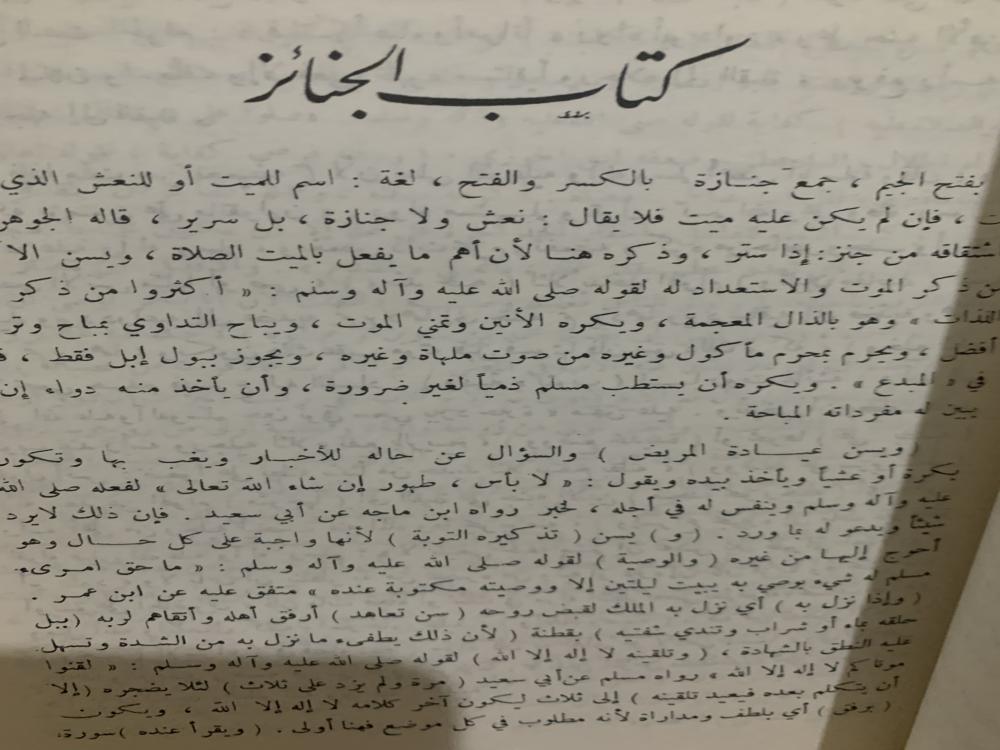 كتاب الجنائز
بفتح الجيم ، جمع جنازة بالكسر والفتح ، لغة : اسم للميت أو للنعش الذي
، فإن لم يكن عليه ميت فلا يقال : نعش ولا جنازة ، بل سرير ، قاله
من جنز : إذا ستر ، وذكره هنا لأن أهم ما يفعل بالميت الصلاة ، ويسن
ذكر الموت والاستعداد له لقوله صلى الله عليه وآله وسلم : « أكثروا من ذكر
» وهو بالذال المعجمة ، ويكره الأنين وتمني الموت ، ويباح التداوي بمباح
أفضل ، ويحرم بمحرم مأكول وغيره من صوت ملهاة وغيره ، ويجوز ببول إبل فقط ،
في « المبدع » . ويكره أن يستطب مسلم ذمياً لغير ضرورة ، وأن يأخذ منه دواء
يبين له مفرداته المباحة .
( ويسن عيادة المريض ) والسؤال عن حاله للأخبار ويغب بها وتكون
بكرة أو عشياً ويأخذ بيده ويقول : « لا بأس ، طهور إن شاء الله تعالى » لفعله صلى الله
عليه وآله وسلم وينفس له في أجله ، لخبر رواه ابن ماجه عن أبي سعيد . فإن ذلك لا يرد
شيئاً ويدعو له بما ورد . ( و ) يسن ( تذكيره التوبة ) لأنها واجبة على كل حال وهو
أحوج إليها من غيره ( والوصية ) لقوله صلى الله عليه وآله وسلم : « ما حق امرىء
مسلم له شيء يوصي به يبيت ليلتين إلا ووصيته مكتوبة عنده » متفق عليه عن ابن عمر .
( وإذا نزل به ) أي نزل به الملك لقبض روحه ( سن تعاهد ) أرفق أهله وأتقاهم لربه ( ببل
حلقه بماء أو شراب وتندي شفتيه ) بقطنة ( لأن ذلك يطفىء ما نزل به من الشدة وتسهل
عليه النطق بالشهادة ، ( وتلقينه لا إله إلا الله ) لقوله صلى الله عليه وآله وسلم : « لقنوا
موتاكم لا إله إلا الله » رواه مسلم عن أبي سعيد ( مرة ولم يزد على ثلاث ) لئلا يضجره ( إلا
أن يتكلم بعده فيعيد تلقينه ) إلى ثلاث ليكون آخر كلامه لا إله إلا الله ، ويكون
( برفق ) أي بلطف ومداراة لأنه مطلوب في كل موضع فهنا أولى . ( ويقرأ عنده ) سورة